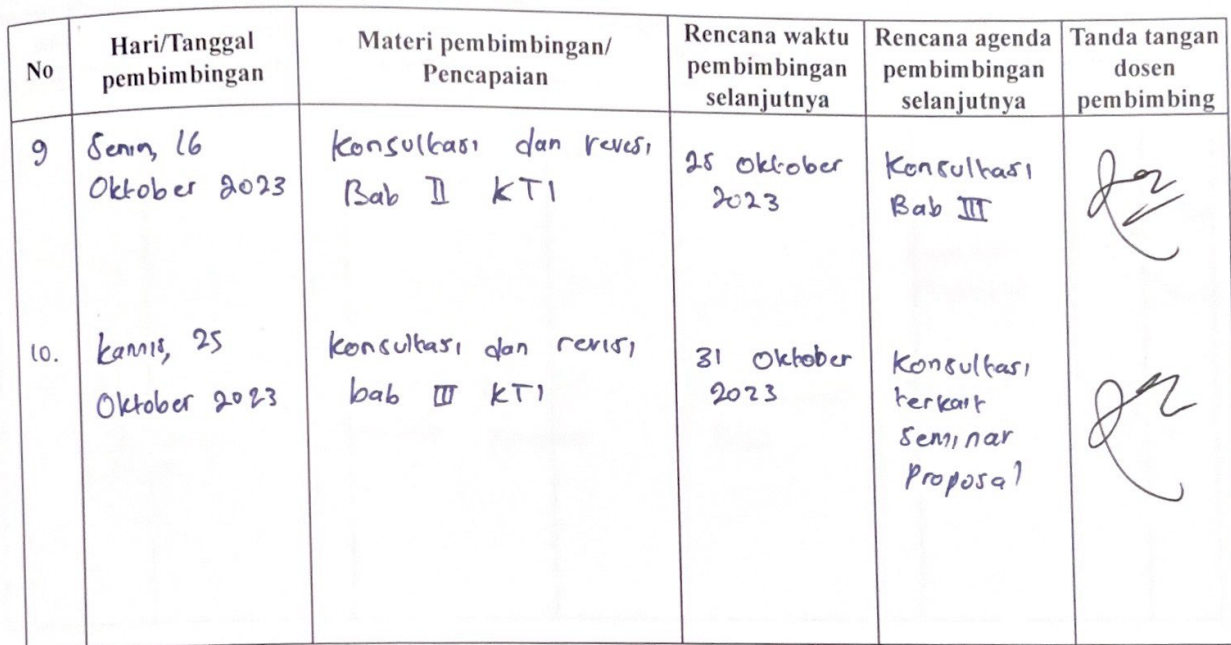 No
Hari/Tanggal
pembimbingan
Materi pembimbingan/
Pencapaian
Rencana waktu
pembimbingan
selanjutnya
Rencana agenda
pembimbingan
selanjutnya
Tanda tangan
dosen
pembimbing
9
Senin, 16
Oktober 2023
Konsultasi dan revisi
Bab II KTI
25 Oktober
2023
Konsultasi
Bab III
10.
Kamis, 25
Oktober 2023
Konsultasi dan revisi
bab III KTI
31 Oktober
2023
Konsultasi
terkait
Seminar
Proposal